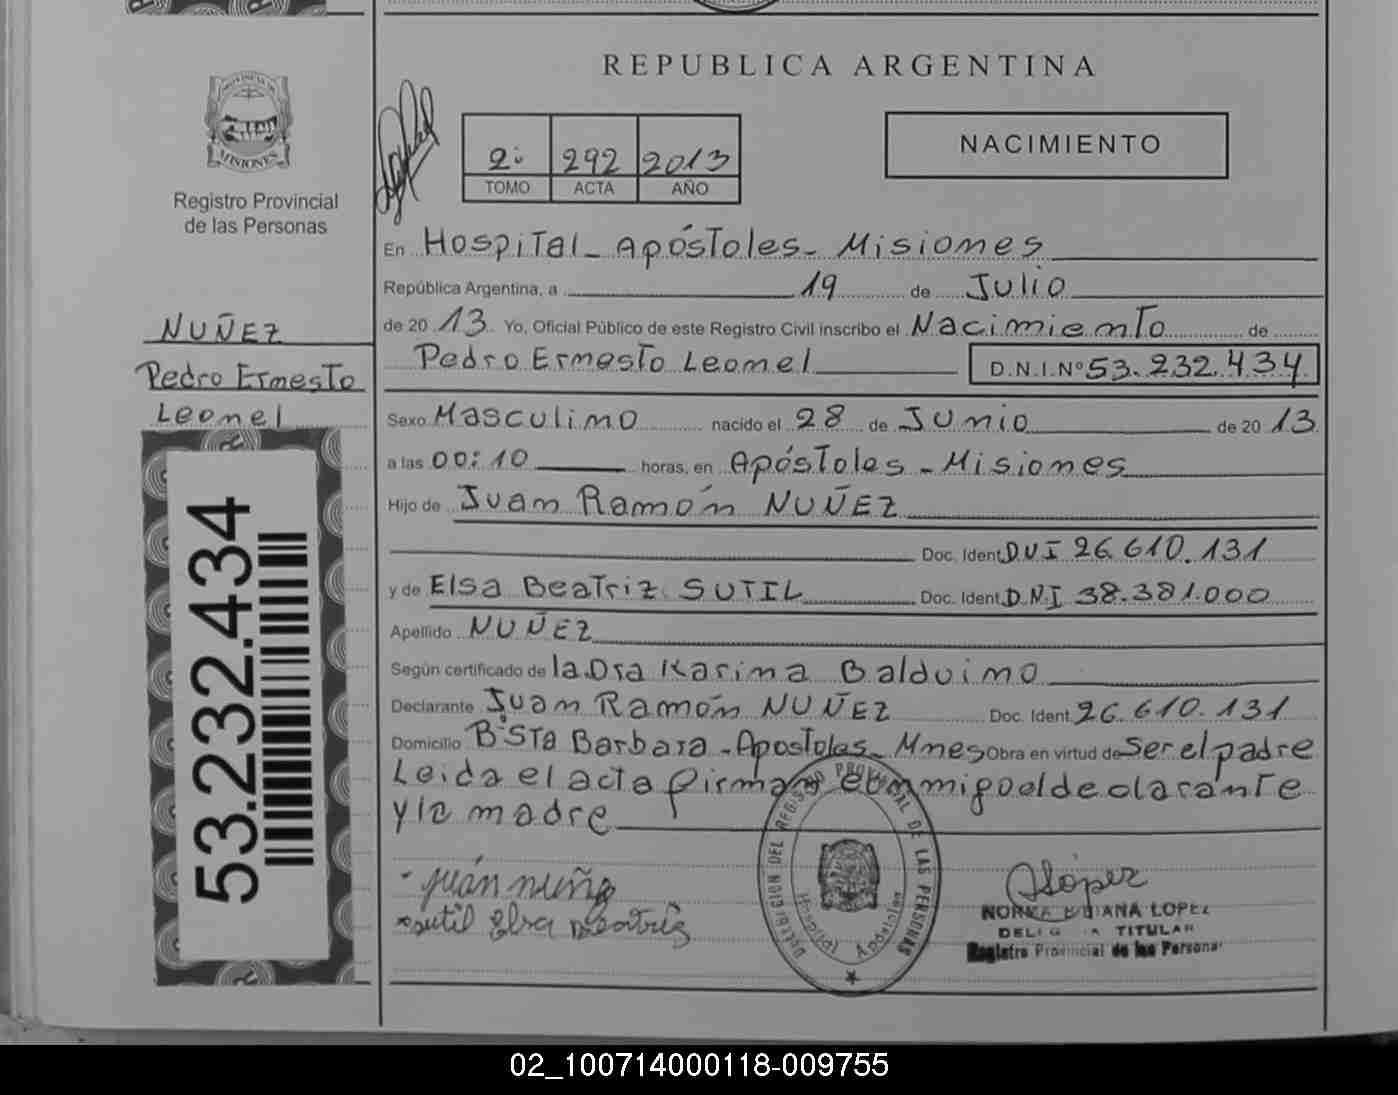 REPUBLICA ARGENTINA
PROVINCIA DE
MISIONES
Registro Provincial
de las Personas
2º 292 2013
TOMO ACTA AÑO
NACIMIENTO
En Hospital - Apóstoles - Misiones
República Argentina, a 19 de Julio
de 20 13 Yo, Oficial Público de este Registro Civil inscribo el Nacimiento de
Pedro Ernesto Leonel D.N.I.Nº 53.232.434
NUÑEZ
Pedro Ernesto
Leonel
Sexo Masculino nacido el 28 de Junio de 20 13
a las 00:10 horas, en Apóstoles - Misiones
Hijo de Juan Ramón NUÑEZ
Doc. Ident. DNI 26.610.131
y de Elsa Beatriz SUTIL Doc. Ident. D.N.I 38.381.000
Apellido NUÑEZ
Según certificado de la Dra Karina Balduino
Declarante Juan Ramón NUÑEZ Doc. Ident. 26.610.131
Domicilio Bº Sta Barbara - Apostoles - Mnes Obra en virtud de Ser el padre
Leida el acta firman conmigo el declarante
y la madre
53.232.434
Juán nuñez
sutil Elsa Beatriz
DIRECCION DEL REGISTRO PROVINCIAL DE LAS PERSONAS
Hospital Apóstoles
NLópez
NORMA BIBIANA LOPEZ
DELEGADA TITULAR
Registro Provincial de las Personas
02_100714000118-009755